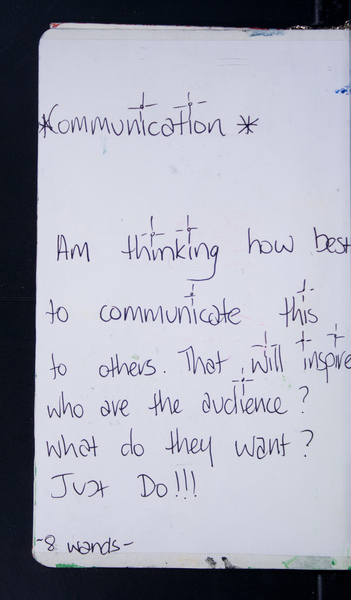 *Communication *
Am thinking how best
to communicate this
to others. That will inspire
who are the audience?
what do they want?
Just Do!!!
-8 wands-